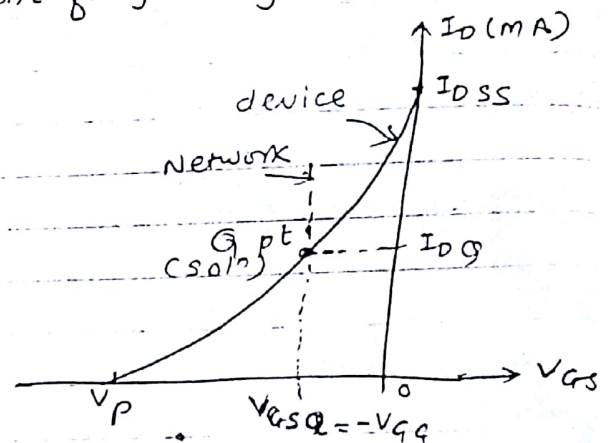 I_D (mA)
I_DSS
device
Network
Q pt
(soln)
I_DQ
V_GS
V_P
V_GSQ = -V_GG
0